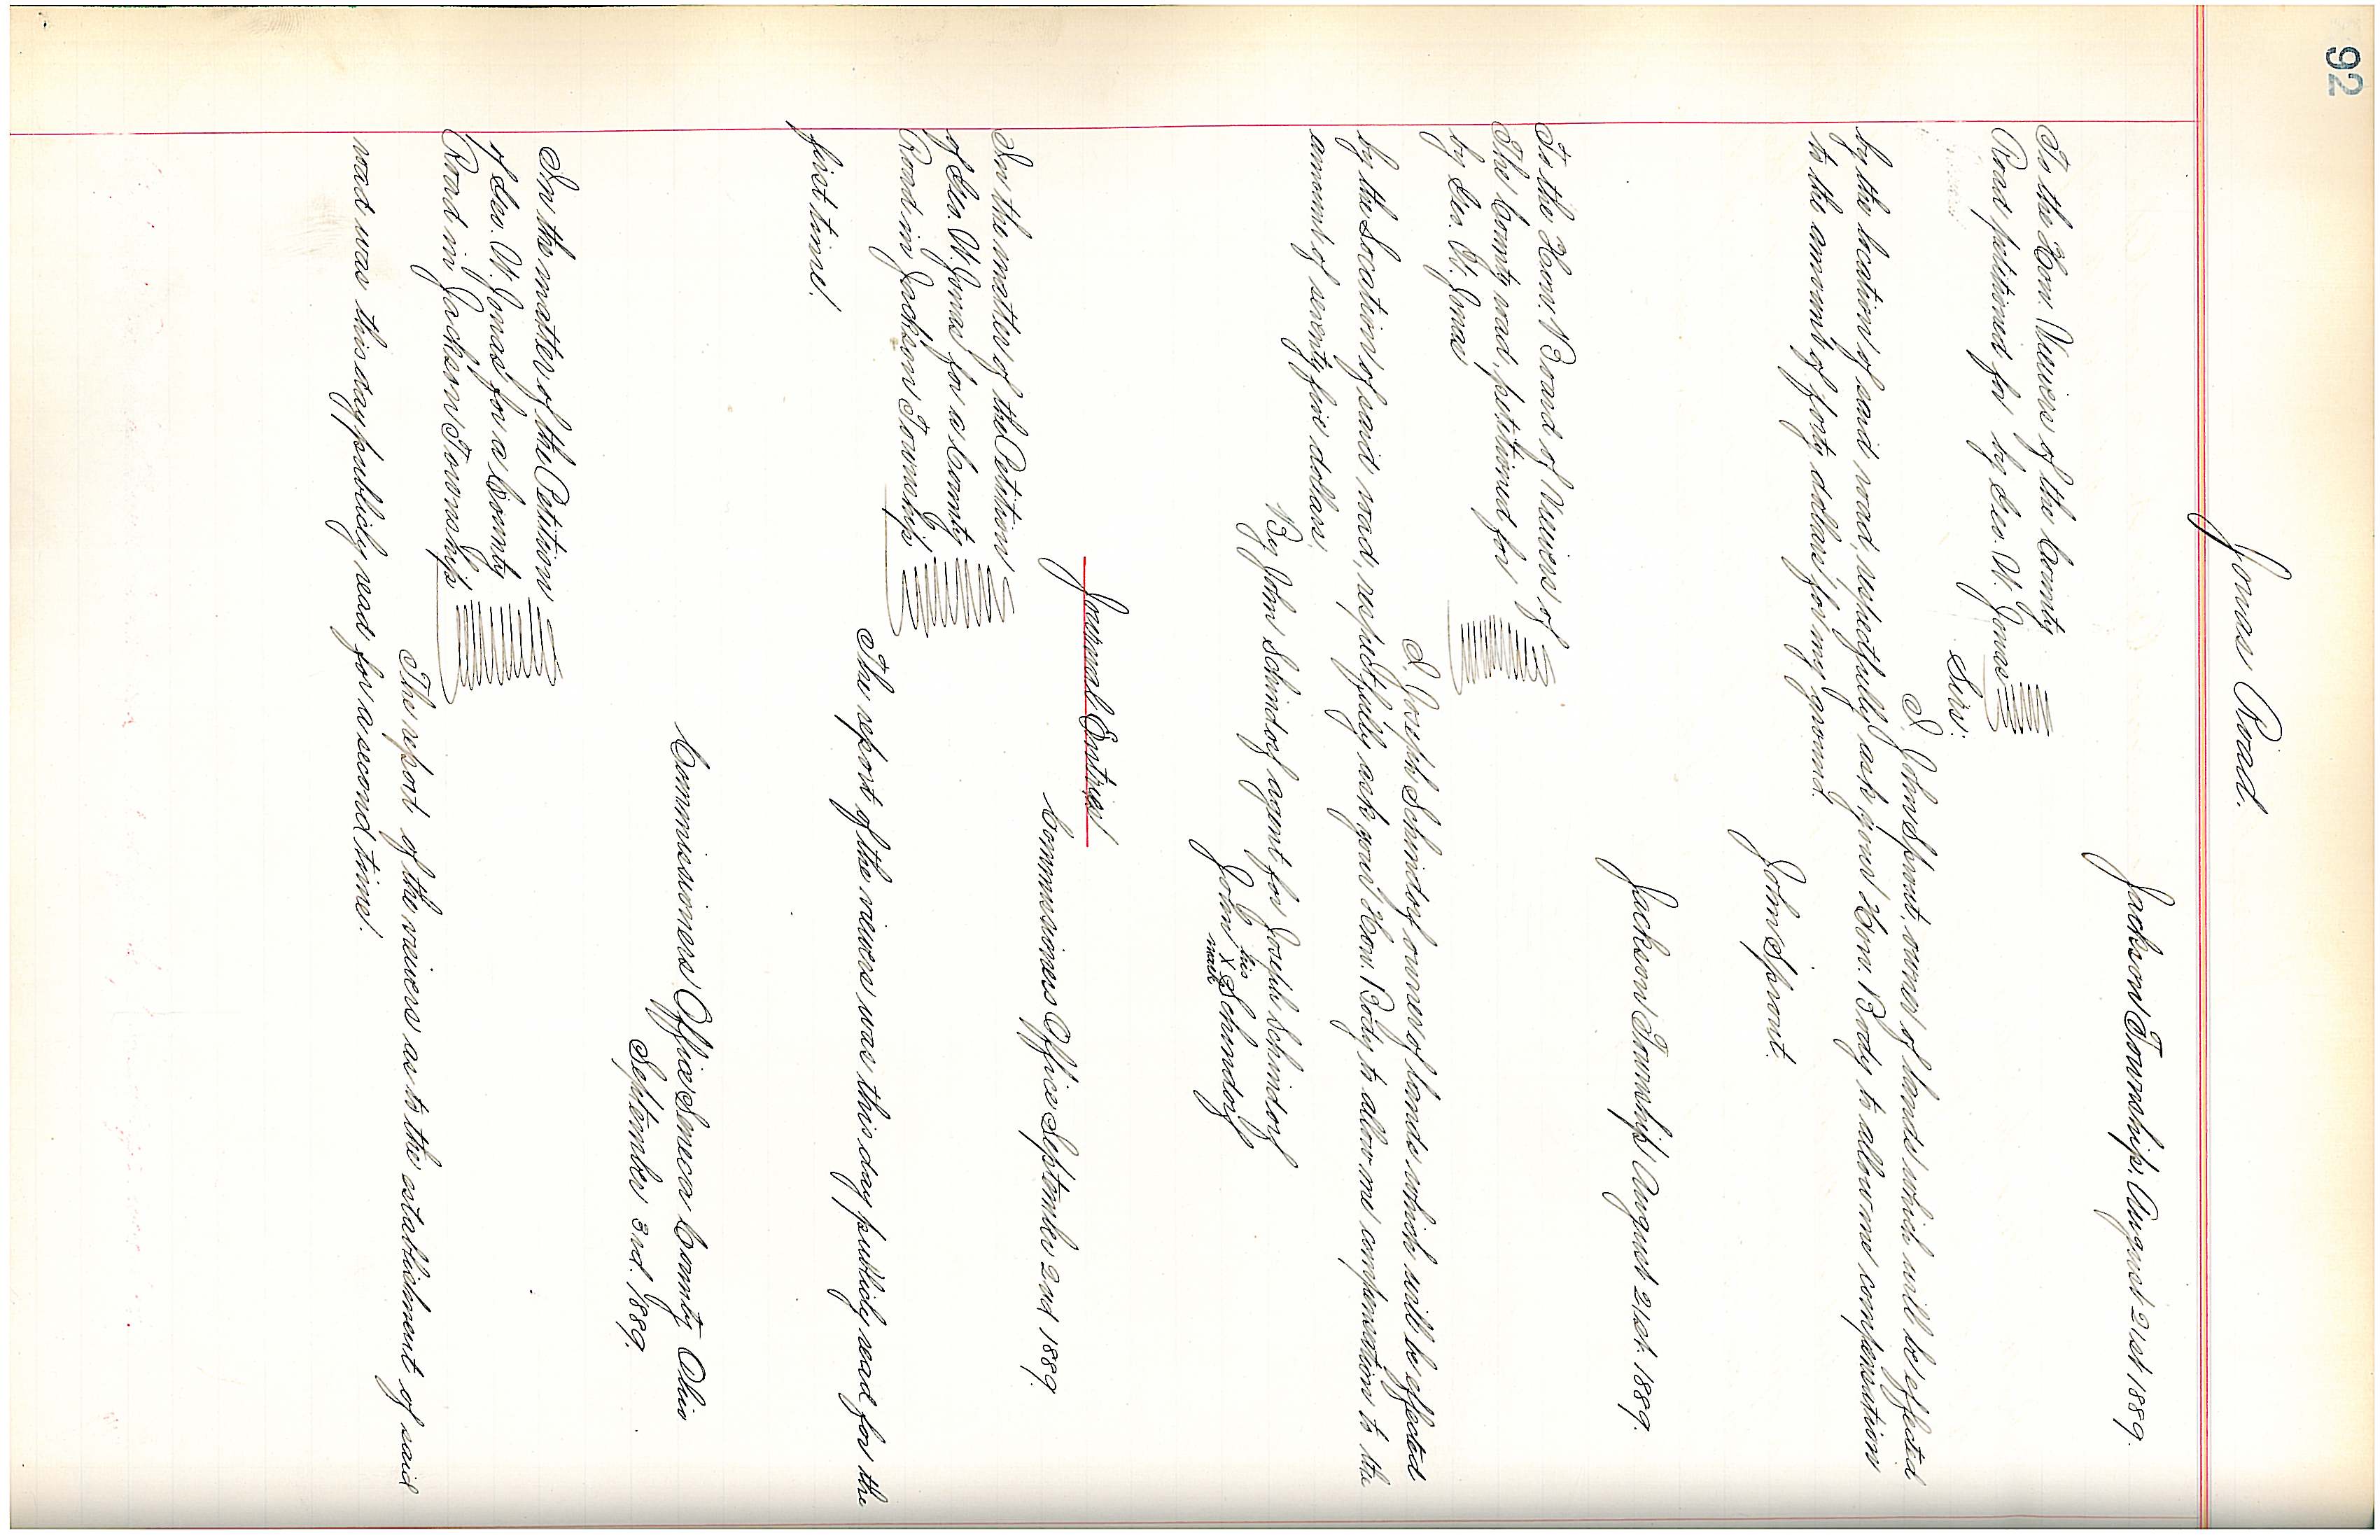 92
Jonas Road.
Jackson Township, August 21st 1889.
To the Hon. Viewers of the County
Road petitioned for by Geo. W. Jonas
Sirs:
I, John Sprout, owner of lands which will be effected
by the location of said road, respectfully ask your Hon. Body to allow me compensation
to the amount of forty dollars for my ground.
John Sprout.
Jackson Township August 21st 1889.
To the Hon. Board of Viewers of
The County road petitioned for
by Geo. W. Jonas
I, Joseph Schindorf owner of lands which will be effected
by the Location of said road, respectfully ask your Hon. Body to allow me compensation to the
amount of seventy five dollars.
By John Schindorf agent for Joseph Schindorf
his
John X Schendorf
mark
Journal Entries
Commissioners Office September 2nd 1889.
In the matter of the Petition
of Geo. W. Jonas for a County
Road in Jackson Township
The report of the viewers was this day publicly read for the
first time.
Commissioners Office Seneca County Ohio
September 3rd. 1889.
In the matter of the Petition
of Geo. W. Jonas for a County
Road in Jackson Township
The report of the viewers as to the establishment of said
road was this day publicly read for a second time.